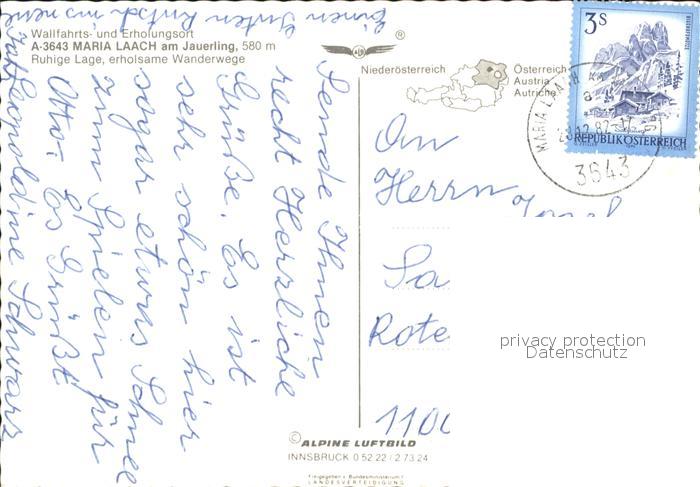 Wallfahrts- und Erholungsort
A-3643 MARIA LAACH am Jauerling, 580 m
Ruhige Lage, erholsame Wanderwege
®
Niederösterreich
Österreich
Austria
Autriche
3S
REPUBLIK ÖSTERREICH
MARIA LAACH
3643
Sende Ihnen
recht Herzliche
Grüße. Es ist
sehr schön hier
sogar etwas Schnee
zum Spielen für
Otto. Es Grüßt
Leopoldine Schwarz
Einen Guten Rutsch ins neue
An
Herrn Josef
Sa
Rote
1100
privacy protection
Datenschutz
© ALPINE LUFTBILD
INNSBRUCK 0 52 22 / 2 73 24
Freigegeben v. Bundesministerium f.
LANDESVERTEIDIGUNG